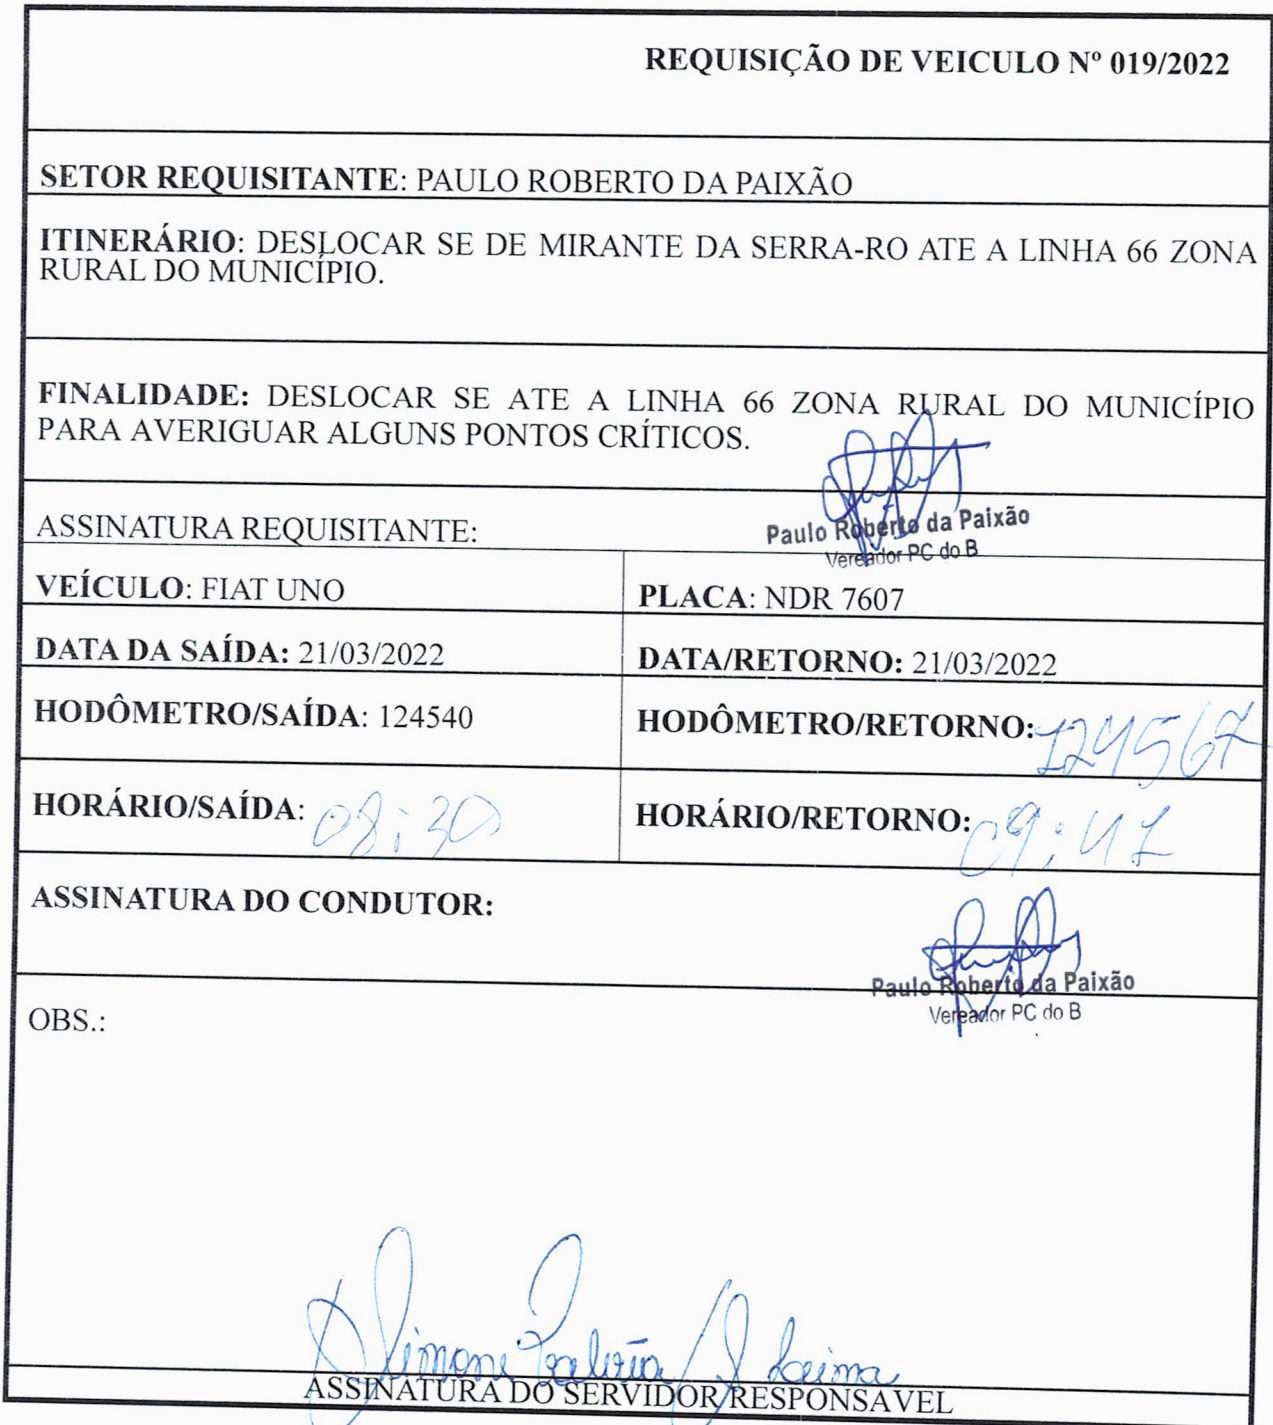 REQUISIÇÃO DE VEICULO Nº 019/2022
SETOR REQUISITANTE: PAULO ROBERTO DA PAIXÃO
ITINERÁRIO: DESLOCAR SE DE MIRANTE DA SERRA-RO ATE A LINHA 66 ZONA
RURAL DO MUNICÍPIO.
FINALIDADE: DESLOCAR SE ATE A LINHA 66 ZONA RURAL DO MUNICÍPIO
PARA AVERIGUAR ALGUNS PONTOS CRÍTICOS.
ASSINATURA REQUISITANTE:
Paulo Roberto da Paixão
Vereador PC do B
VEÍCULO: FIAT UNO
PLACA: NDR 7607
DATA DA SAÍDA: 21/03/2022
DATA/RETORNO: 21/03/2022
HODÔMETRO/SAÍDA: 124540
HODÔMETRO/RETORNO: 124567
HORÁRIO/SAÍDA: 08:30
HORÁRIO/RETORNO: 09:41
ASSINATURA DO CONDUTOR:
Paulo Roberto da Paixão
Vereador PC do B
OBS.:
Simone
ASSINATURA DO SERVIDOR RESPONSAVEL